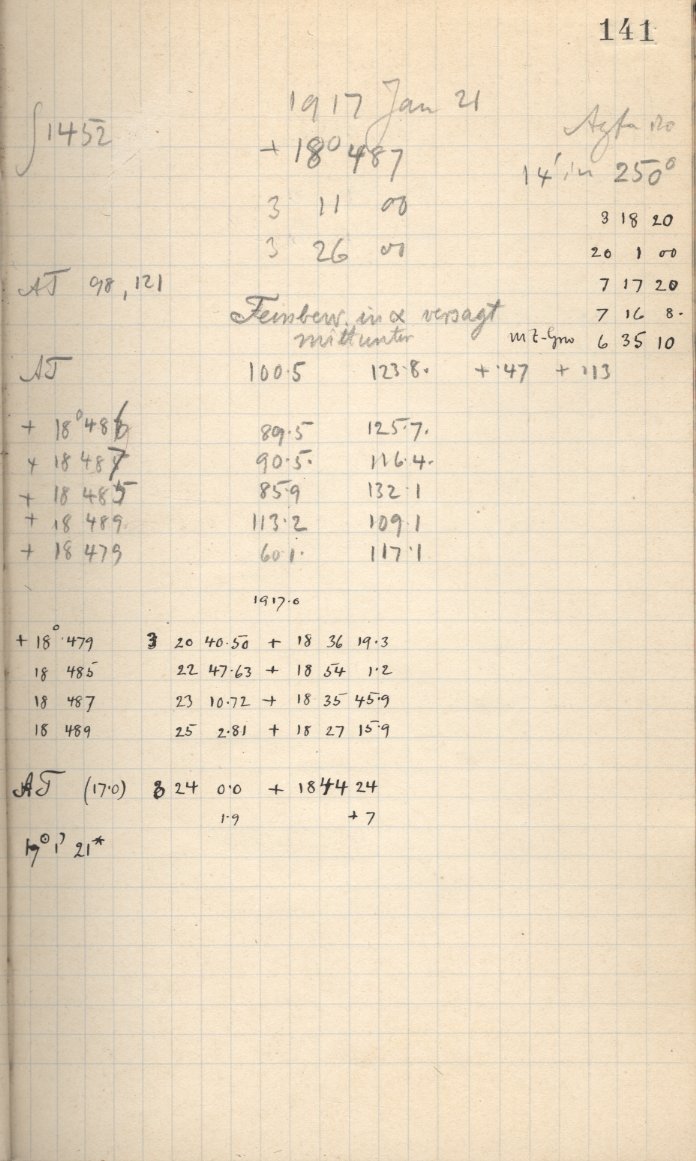 141
1917 Jan 21
1452
+ 18° 487
Agfa
14' in 250°
3 11 00
3 18 20
3 26 00
20 1 00
AT 98, 121
7 17 20
Feinbew. in α versagt
7 16 8.
mittunter
MZ-Grw 6 35 10
AT 100.5 123.8. + .47 + .113
+ 18° 486 89.5 125.7.
+ 18 487 90.5. 116.4.
+ 18 485 85.9 132.1
+ 18 489. 113.2 109.1
+ 18 479 60.1. 117.1
1917.0
+ 18° 479 3 20 40.50 + 18 36 19.3
18 485 22 47.63 + 18 54 1.2
18 487 23 10.72 + 18 35 45.9
18 489 25 2.81 + 18 27 15.9
AT (17.0) 3 24 0.0 + 18 44 24
1.9 + 7
21*